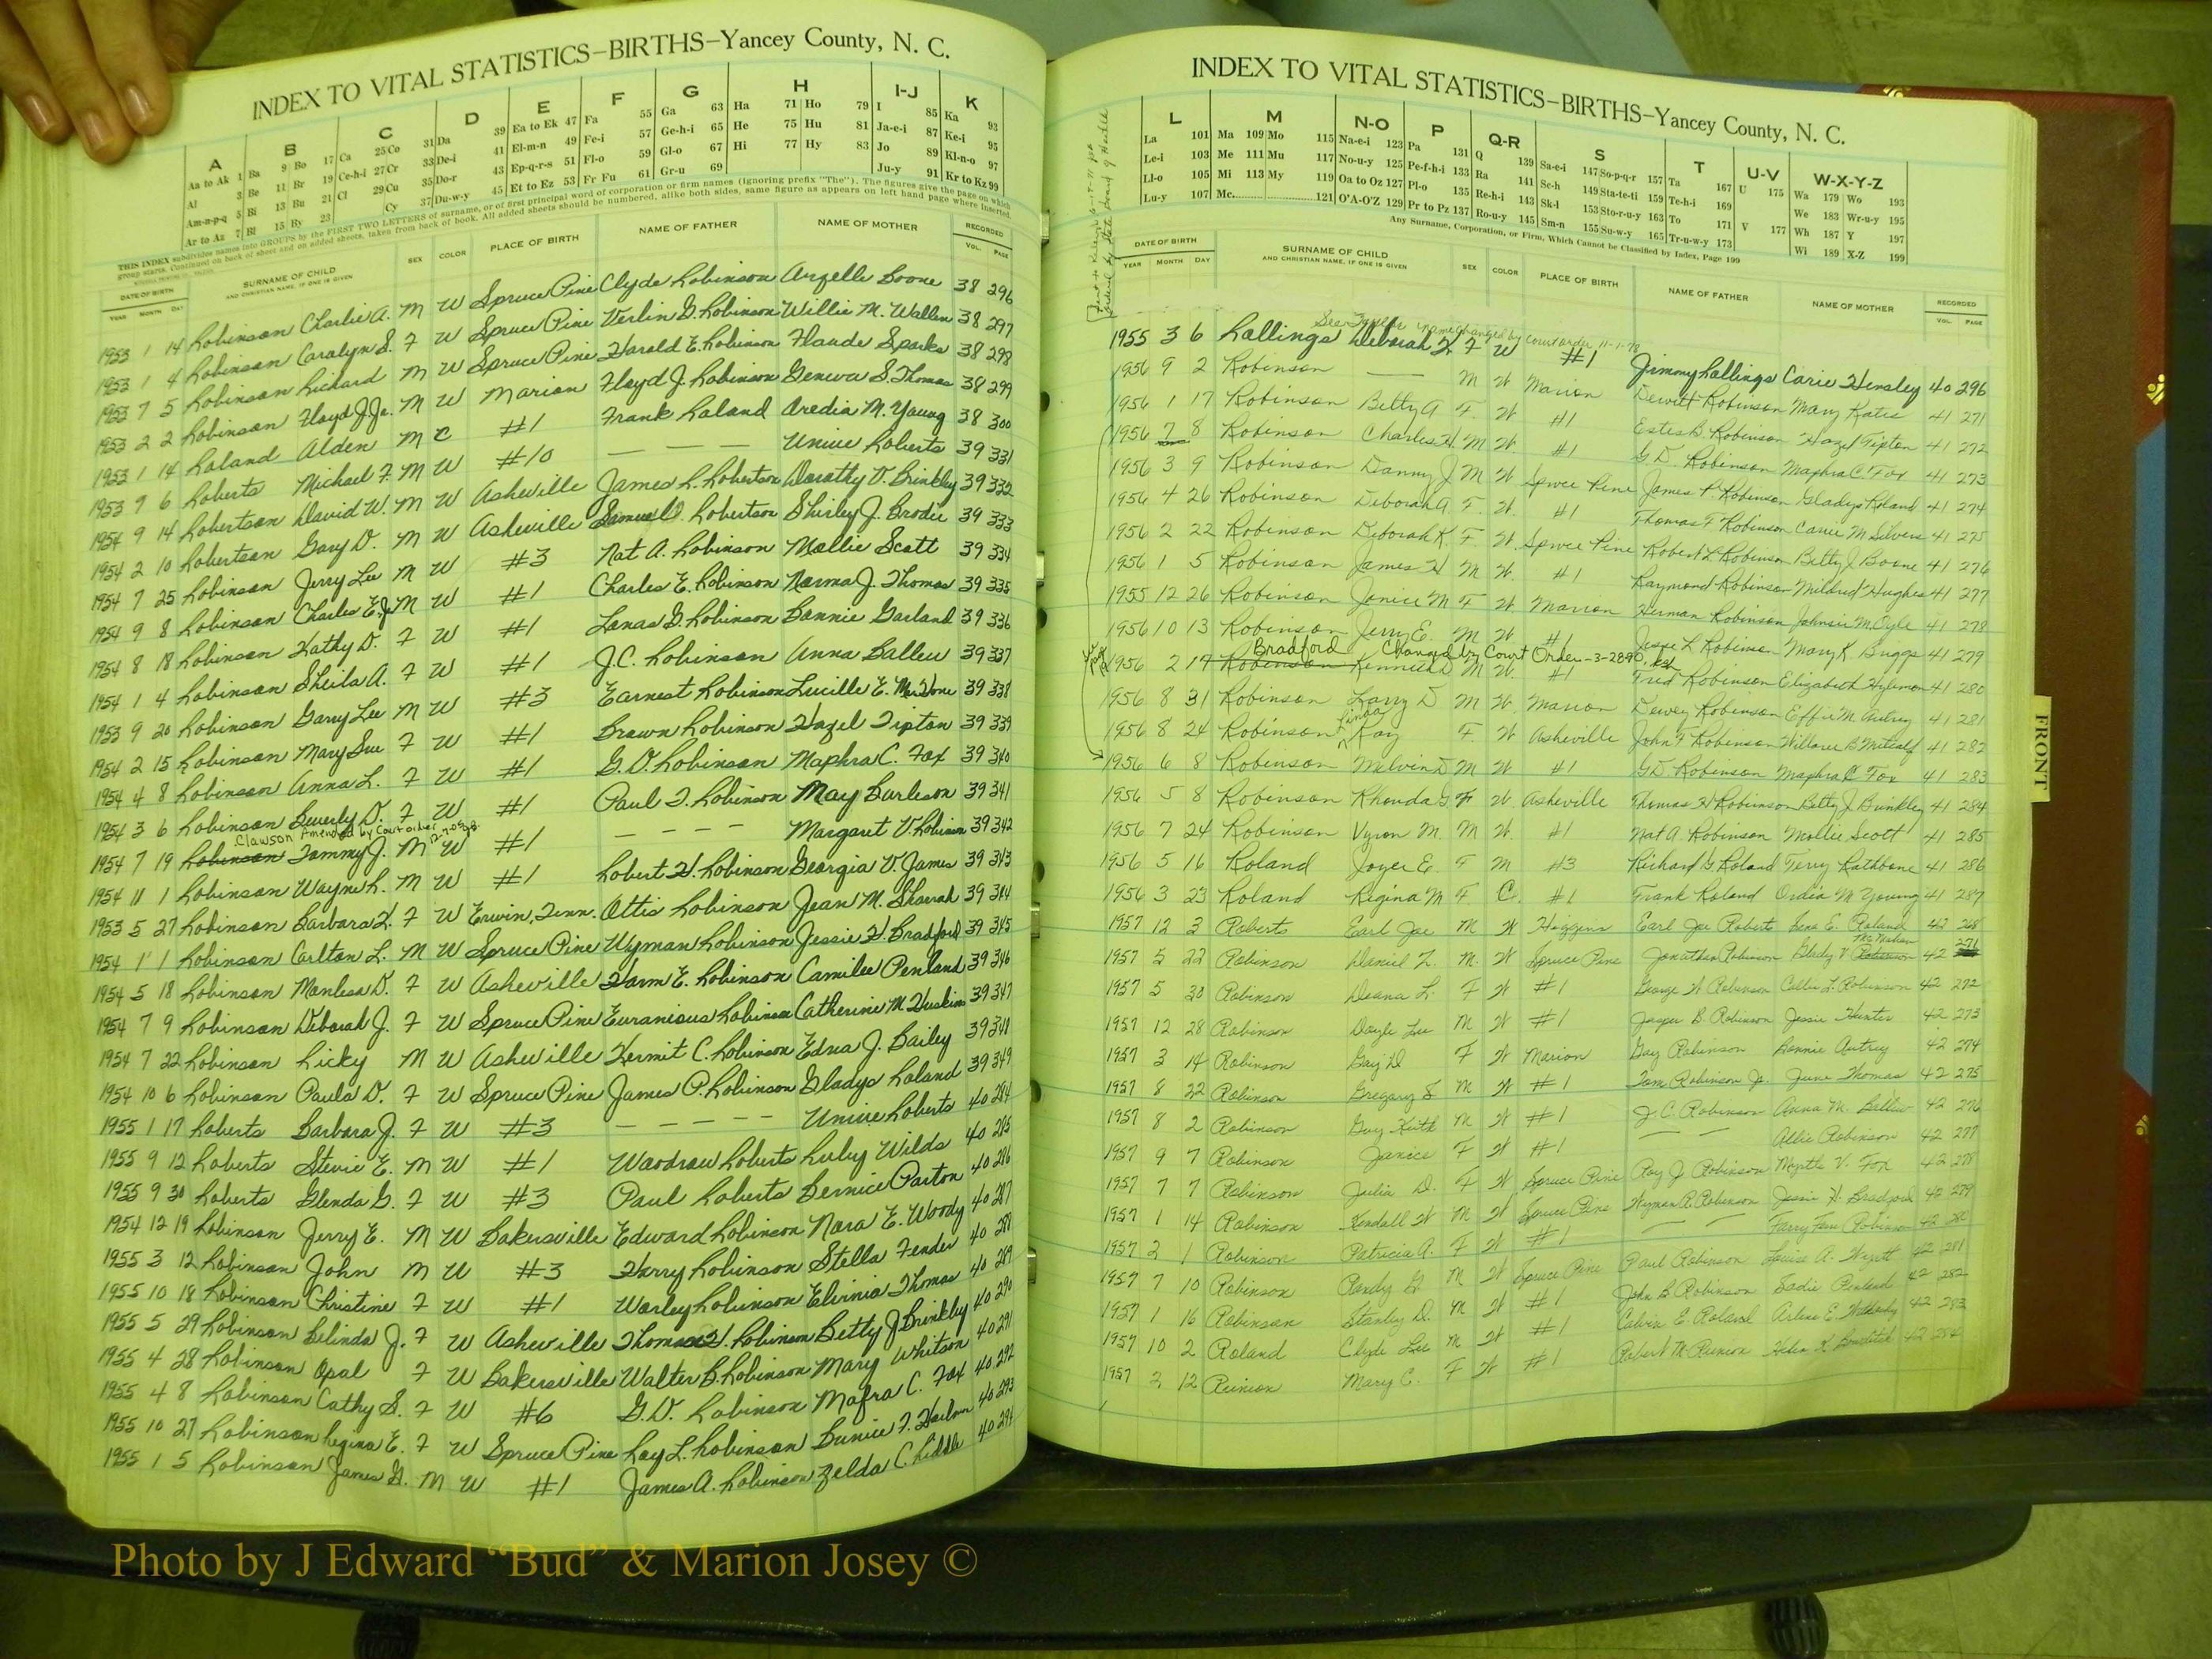 INDEX TO VITAL STATISTICS—BIRTHS—Yancey County, N. C.
A B C D E F G H I-J K
Aa to Ak 1 Ba 9 Bo 17 Ca 25 Co 31 Da 39 Ea to Ek 47 Fa 55 Ga 63 Ha 71 Ho 79 I 85 Ka 93
Al 3 Be 11 Br 19 Ce-h-i 27 Cr 33 De-i 41 El-m-n 49 Fe-i 57 Ge-h-i 65 He 75 Hu 81 Ja-e-i 87 Ke-i 95
Am-n-p-q 5 Bi 13 Bu 21 Cl 29 Cu 35 Do-r 43 Ep-q-r-s 51 Fl-o 59 Gl-o 67 Hi 77 Hy 83 Jo 89 Kl-n-o 97
Ar to Az 7 Bl 15 By 23 Cy 37 Du-w-y 45 Et to Ez 53 Fr Fu 61 Gr-u 69 Ju-y 91 Kr to Kz 99
THIS INDEX subdivides names into GROUPS by the FIRST TWO LETTERS of surname, or of first principal word of corporation or firm names (ignoring prefix "The"). The figures give the page on which
group starts. Continued on back of sheet and on added sheets, taken from back of book. All added sheets should be numbered, alike both sides, same figure as appears on left hand page where inserted.
DATE OF BIRTH SURNAME OF CHILD SEX COLOR PLACE OF BIRTH NAME OF FATHER NAME OF MOTHER RECORDED
YEAR MONTH DAY AND CHRISTIAN NAME, IF ONE IS GIVEN VOL. PAGE
1953 1 14 Robinson Charlie A. M W Spruce Pine Clyde Robinson Arzelle Boone 38 296
1953 1 4 Robinson Caralyn S. F W Spruce Pine Verlin G. Robinson Willie M. Wallen 38 297
1953 7 5 Robinson Richard M W Spruce Pine Harold E. Robinson Flaude Sparks 38 298
1953 2 2 Robinson Floyd J. Jr. M W Marion Floyd J. Robinson Geneva S. Thomas 38 299
1953 1 14 Roland Alden M C #1 Frank Roland Aredia M. Young 38 300
1953 9 6 Roberts Michael F. M W #10 — — — Unice Roberts 39 331
1954 9 14 Robertson David W. M W Asheville James R. Robertson Dorothy V. Brinkley 39 332
1954 2 10 Robertson Gary D. M W Asheville Samuel D. Robertson Shirley J. Brodie 39 333
1954 7 25 Robinson Jerry Lee M W #3 Nat A. Robinson Mollie Scott 39 334
1954 9 8 Robinson Charles E. Jr M W #1 Charles E. Robinson Norma J. Thomas 39 335
1954 8 18 Robinson Kathy D. F W #1 Lonas G. Robinson Bonnie Garland 39 336
1954 1 4 Robinson Sheila A. F W #1 J.C. Robinson Anna Ballew 39 337
1953 9 20 Robinson Garry Lee M W #3 Earnest Robinson Lucille E. McHone 39 338
1954 2 15 Robinson Mary Sue F W #1 Brown Robinson Hazel Tipton 39 339
1954 4 8 Robinson Anna L. F W #1 G.D. Robinson Maphra C. Fox 39 340
1954 3 6 Robinson Beverly D. F W #1 Paul F. Robinson May Burleson 39 341
Clawson Amended by Court order
1954 7 19 Robinson Tommy J. M W #1 — — — — Margaret V. Robinson 39 342
1954 11 1 Robinson Wayne R. M W #1 Robert H. Robinson Georgia V. James 39 343
1953 5 27 Robinson Barbara K. F W Erwin, Tenn. Ottis Robinson Jean M. 39 344
1954 1 1 Robinson Carlton L. M W Spruce Pine Wyman Robinson Jessie H. Bradford 39 345
1954 5 18 Robinson Manlesa D. F W Asheville Harm E. Robinson Camilee Penland 39 346
1954 7 9 Robinson Deborah J. F W Spruce Pine Euranious Robinson Catherine M. Huskins 39 347
1954 7 22 Robinson Ricky M W Asheville Kermit C. Robinson Edna J. Bailey 39 348
1954 10 6 Robinson Paula D. F W Spruce Pine James P. Robinson Gladys Roland 39 349
1955 1 17 Roberts Barbara J. F W #3 — — — Unice Roberts 40 284
1955 9 12 Roberts Stevie E. M W #1 Woodrow Roberts Ruby Wilds 40 285
1955 9 30 Roberts Glenda G. F W #3 Paul Roberts Bernice Parton 40 286
1954 12 19 Robinson Jerry E. M W Bakersville Edward Robinson Nora E. Woody 40 287
1955 3 12 Robinson John M W #3 Harry Robinson Stella Fender 40 288
1955 10 18 Robinson Christine F W #1 Worley Robinson Elvinia Thomas 40 289
1955 5 29 Robinson Belinda J. F W Asheville Thomas H. Robinson Betty J Brinkley 40 290
1955 4 28 Robinson Opal F W Bakersville Walter B. Robinson Mary Whitson 40 291
1955 4 8 Robinson Cathy S. F W #6 G.D. Robinson Mafra C. Fox 40 292
1955 10 27 Robinson Regina E. F W Spruce Pine Roy L. Robinson Bunice F. 40 293
1955 1 5 Robinson James G. M W #1 James A. Robinson Zelda C. Riddle 40 294
INDEX TO VITAL STATISTICS—BIRTHS—Yancey County, N. C.
L M N-O P Q-R S T U-V W-X-Y-Z
La 101 Ma 109 Mo 115 Na-e-i 123 Pa 131 Q 139 Sa-e-i 147 So-p-q-r 157 Ta 167 U 175 Wa 179 Wo 193
Le-i 103 Me 111 Mu 117 No-u-y 125 Pe-f-h-i 133 Ra 141 Sc-h 149 Sta-te-ti 159 Te-h-i 169 We 183 Wr-u-y 195
Ll-o 105 Mi 113 My 119 Oa to Oz 127 Pl-o 135 Re-h-i 143 Sk-l 153 Sto-r-u-y 163 To 171 V 177 Wh 187 Y 197
Lu-y 107 Mc 121 O'A-O'Z 129 Pr to Pz 137 Ro-u-y 145 Sm-n 155 Su-w-y 165 Tr-u-w-y 173 Wi 189 X-Z 199
Any Surname, Corporation, or Firm, Which Cannot be Classified by Index, Page 199
DATE OF BIRTH SURNAME OF CHILD SEX COLOR PLACE OF BIRTH NAME OF FATHER NAME OF MOTHER RECORDED
YEAR MONTH DAY AND CHRISTIAN NAME, IF ONE IS GIVEN VOL. PAGE
See name changed by court order 11-1-78
1955 3 6 Rallings Deborah F W #1 Jimmy Rallings Carie Hensley 40 296
1956 9 2 Robinson — M W Marion Dewitt Robinson Mary Kates 41 271
1956 1 17 Robinson Betty A F. W #1 Estes B. Robinson Hazel Tipton 41 272
1956 7 8 Robinson Charles H. M W. #1 G.D. Robinson Maphra C. Fox 41 273
1956 3 9 Robinson Danny J M W. Spruce Pine James P. Robinson Gladys Roland 41 274
1956 4 26 Robinson Deborah A. F. W. #1 Thomas F Robinson Carrie M Silvers 41 275
1956 2 22 Robinson Deborah K. F. W. Spruce Pine Robert L Robinson Betty J Boone 41 276
1956 1 5 Robinson James H M W. #1 Raymond Robinson Mildred Hughes 41 277
1955 12 26 Robinson Janice M F W. Marion Herman Robinson Johnsie M. Ogle 41 278
1956 10 13 Robinson Jerry E. M W #1 Jesse L Robinson Mary K. Buggs 41 279
Bradford Changed by Court Order-3-28-90,
1956 2 17 Robinson Kenneth D M W. #1 Fred Robinson Elizabeth Hyleman 41 280
1956 8 31 Robinson Larry D M W. Marion Dewey Robinson Effie M. Autrey 41 281
Linda
1956 8 24 Robinson Kay F. W Asheville John F Robinson Willaree B Metcalf 41 282
1956 6 8 Robinson Melvin D M W #1 G.D. Robinson Maphra C Fox 41 283
1956 5 8 Robinson Rhonda G. F W. Asheville Thomas H Robinson Betty J Brinkley 41 284
1956 7 24 Robinson Vyron M. M W. #1 Nat A Robinson Mollie Scott 41 285
1956 5 16 Roland Joyce E F M #3 Richard G. Roland Terry Rathbone 41 286
1956 3 23 Roland Regina M F. C. #1 Frank Roland Ordia M Young 41 287
1957 12 3 Roberts Earl Joe M W Higgins Earl Joe Roberts Lena E. Roland 42 268
McMahan
1957 5 22 Robinson Daniel L. M. W Spruce Pine Jonathan Robinson Glady V. Robinson 42 271
1957 5 30 Robinson Deana L. F W #1 George W Robinson Callie L. Robinson 42 272
1957 12 28 Robinson Doyle Lee M W #1 Jasper B. Robinson Jessie Hunter 42 273
1957 3 14 Robinson Gay D F W Marion Guy Robinson Bonnie Autrey 42 274
1957 8 22 Robinson Gregory S M W #1 Tom Robinson Jr. June Thomas 42 275
1957 8 2 Robinson Guy Keith M W #1 J C. Robinson Anna M. Ballew 42 276
1957 9 7 Robinson Janice F W #1 — — Allie Robinson 42 277
1957 7 7 Robinson Julia D. F W Spruce Pine Roy J Robinson Myrtle V. Fox 42 278
1957 1 14 Robinson Kendall W M W Spruce Pine Wyman R. Robinson Jessie H. Bradford 42 279
1957 2 1 Robinson Patricia A. F W #1 — — Robinson 42 280
1957 7 10 Robinson Randy M W Spruce Pine Paul Robinson Louise A. Wyatt 42 281
1957 1 16 Robinson Stanley D. M W #1 John B Robinson Sadie Penland 42 282
1957 10 2 Roland Clyde Lee M W #1 Calvin E. Roland Arlene E. 42 283
1957 2 12 Runion Mary C. F W #1 Robert M. Runion Helen K. 42 284
FRONT
Photo by J Edward "Bud" & Marion Josey ©